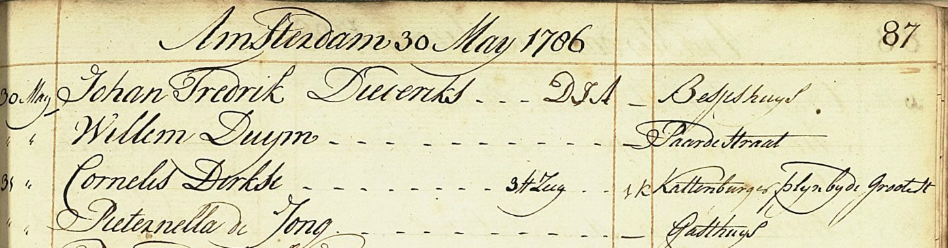 Amsterdam 30 May 1786 87
30 May Johan Fredrik Dierenks - - - DIA - Bespshuys
" " Willem Duym - - - - - - - - - - - - - - Paarde Straat
31 " Cornelis Dirkse - - - - - - - - - - - - 1 k Kattenburger plyn by de Groote St
" " Pieternella de Jong - - - - - - - - - - - - Gasthuys